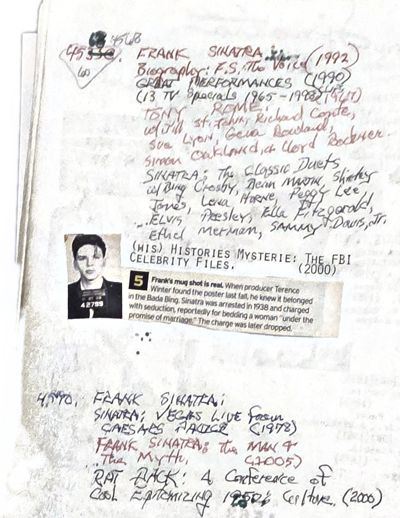 4568
60
FRANK SINATRA (1992)
Biography: F.S.: The Voice
GREAT PERFORMANCES (1990)
(13 TV Specials 1965-
TONY ROME: (1967)
w/ Jill St. John, Richard Conte,
Sue Lyon, Gena Rowland,
Simon Oakland, Lloyd Bochner.
SINATRA: The Classic Duets
w/ Bing Crosby, Dean Martin, Shirley
Jones, Lena Horne, Peggy Lee,
...Elvis Presley, Ella Fitzgerald,
Ethel Merman, Sammy Davis, Jr.
(HIS) HISTORIES MYSTERIE: THE FBI
CELEBRITY FILES. (2000)
42799
5 Frank's mug shot is real. When producer Terence
Winter found the poster last fall, he knew it belonged
in the Bada Bing. Sinatra was arrested in 1938 and charged
with seduction, reportedly for bedding a woman "under the
promise of marriage." The charge was later dropped.
FRANK SINATRA:
SINATRA: VEGAS LIVE from
CAESARS PALACE (1978)
FRANK SINATRA: the MAN &
The Myth, (2005)
RAT PACK: A Conference of
Cool Epitomizing 1950s Culture. (2000)